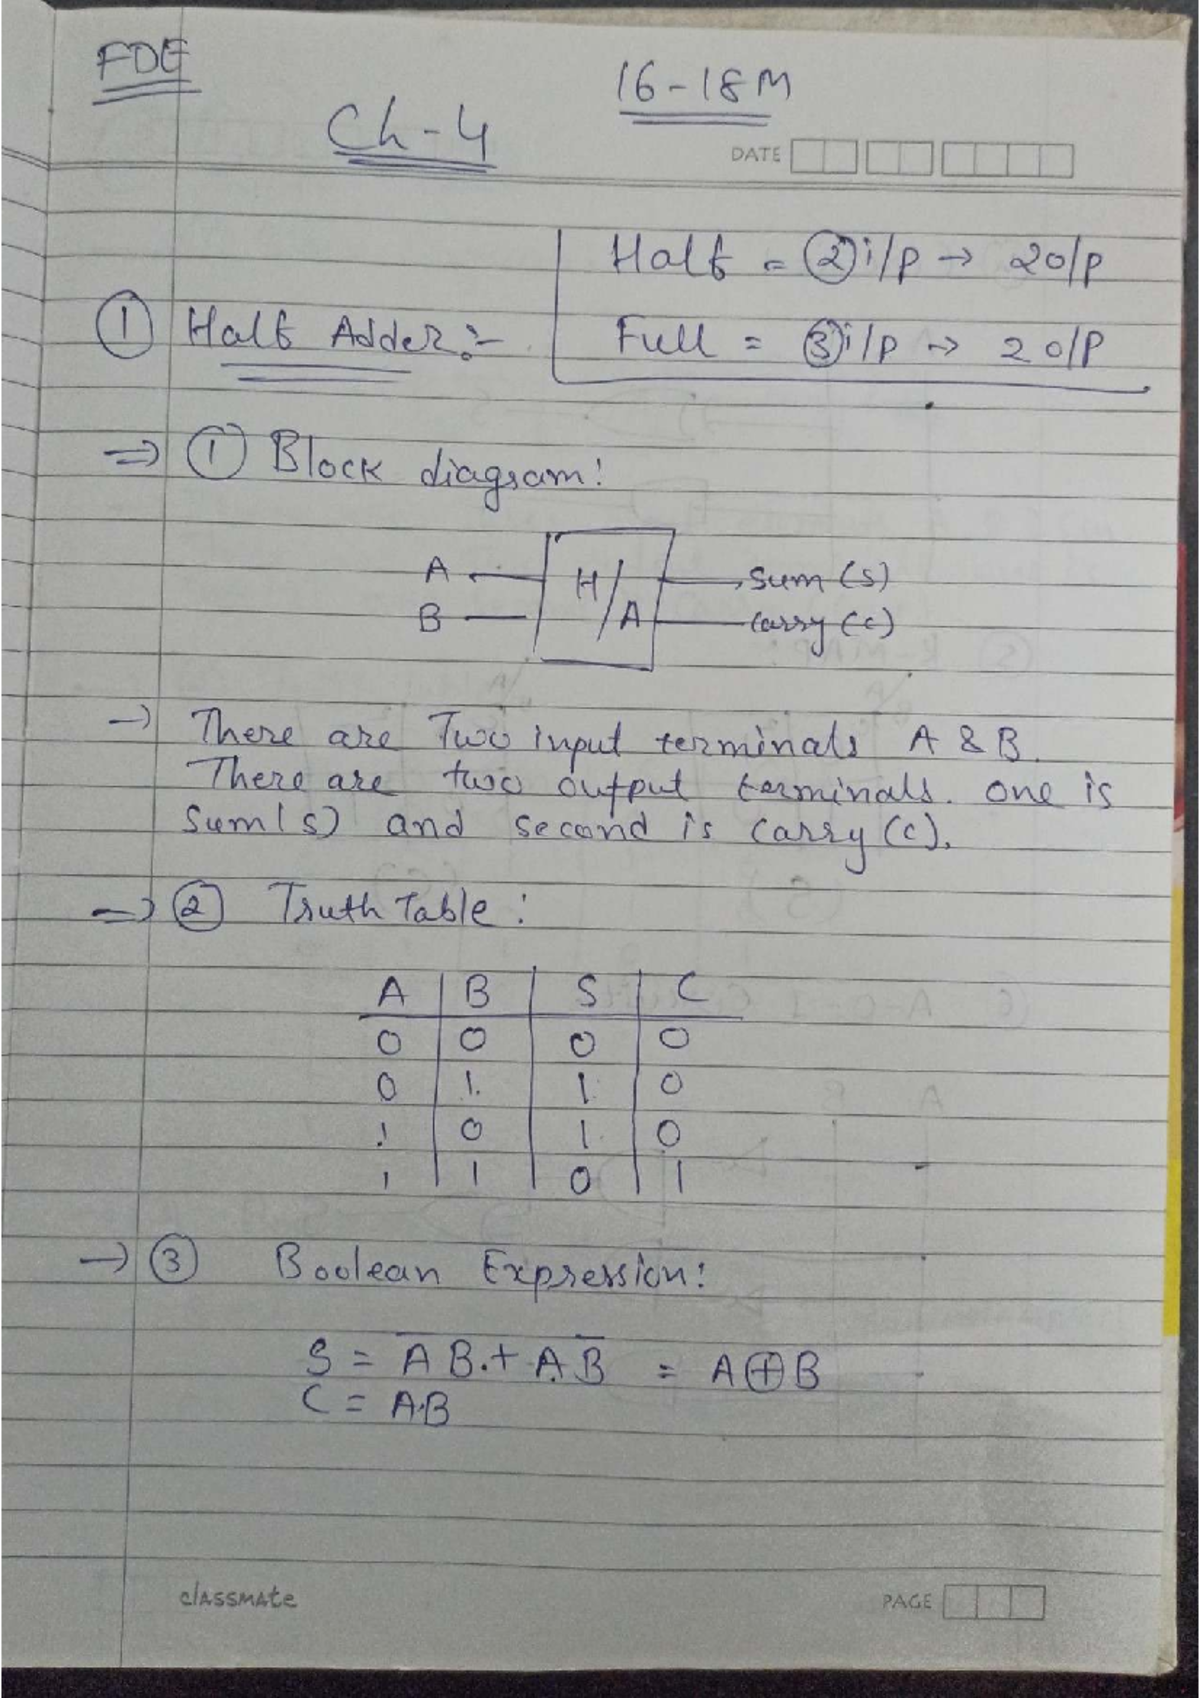 FDE
16-18M
Ch-4
DATE
Half = ② i/p → 2 o/p
① Half Adder :-
Full = ③ i/p → 2 o/p
⇒ ① Block diagram:
A H/A Sum (S)
B Carry (C)
→ There are Two input terminals A & B.
There are two output terminals. one is
Sum(S) and second is carry (C).
⇒ ② Truth Table :
A | B | S | C
0 | 0 | 0 | 0
0 | 1 | 1 | 0
1 | 0 | 1 | 0
1 | 1 | 0 | 1
→ ③ Boolean Expression:
S = A̅ B. + A. B̅ = A⊕B
C = A.B
classmate
PAGE